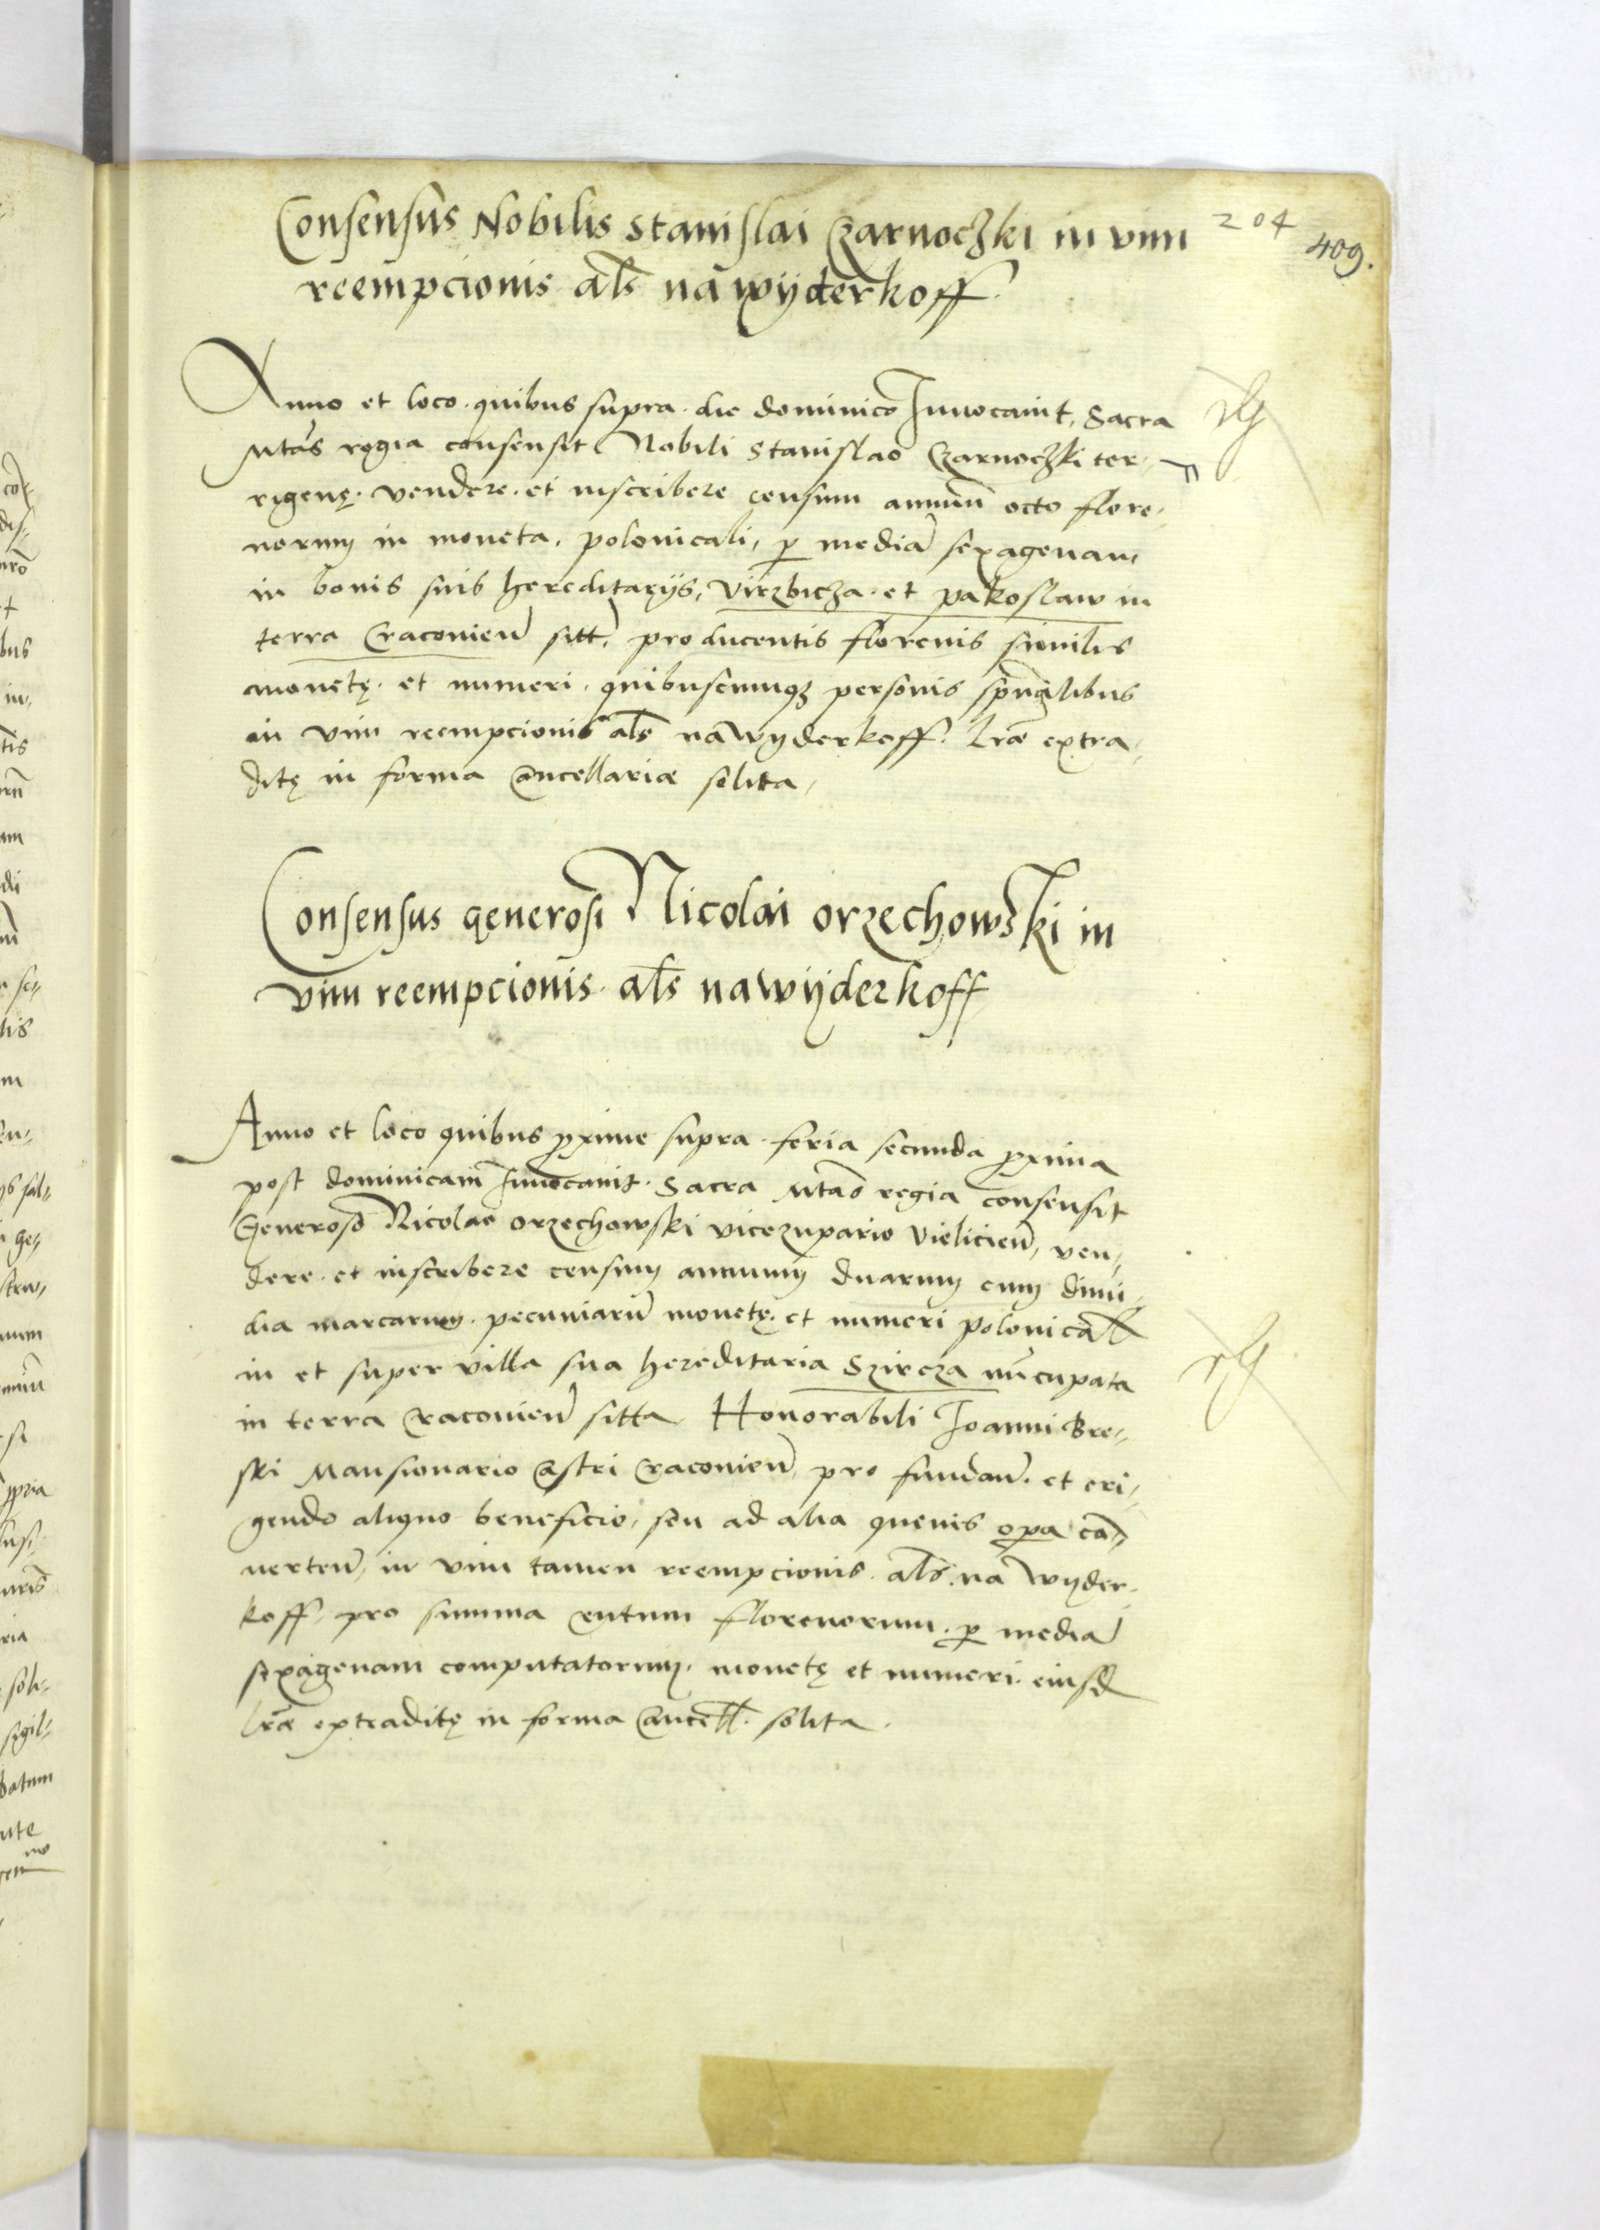 204
409.
Consensus Nobilis Stanislai Czarnoczki in vim
reempcionis als na wÿderkoff
Anno et loco quibus supra die dominico Invocavit, Sacra
Mtas regia consensit Nobili Stanislao Czarnoczki ter-
rigenę vendere et inscribere censum annuum octo flore-
norum in moneta polonicali, per mediam sexagenam
in bonis suis hereditarÿs, Virzbicza et pakoslaw in
terra Cracovien sitt, pro ducentis florenis similis
monetę et numeri quibuscumqз personis spualibus
in vim reempcionis als na wÿderkoff. Lrae extra-
ditę in forma Cancellariae solita,
Consensus generosi Nicolai orzechowski in
vim reempcionis als na wÿderkoff
Anno et loco quibus proxime supra feria secunda proxima
post dominicam Invocavit Sacra Mtas regia consensit
Generoso Nicolao orzechowski vicezupario Vielicien, ven-
dere et inscribere censum annuum duarum cum dimi-
dia marcarum pecuniarum monetę et numeri polonicall
in et super villa sua hereditaria Szircza nuncupata
in terra Cracovien sitta Honorabili Joanni Bre-
ski Mansionario Castri Cracovien, pro fundan et eri-
gendo aliquo beneficio, seu ad alia quevis opera con-
verten, in vim tamen reempcionis als na wÿder-
koff, pro summa Centum florenorum per mediam
sexagenam computatorum monetę et numeri eiusd
Lrae extraditę in forma Cancell solita